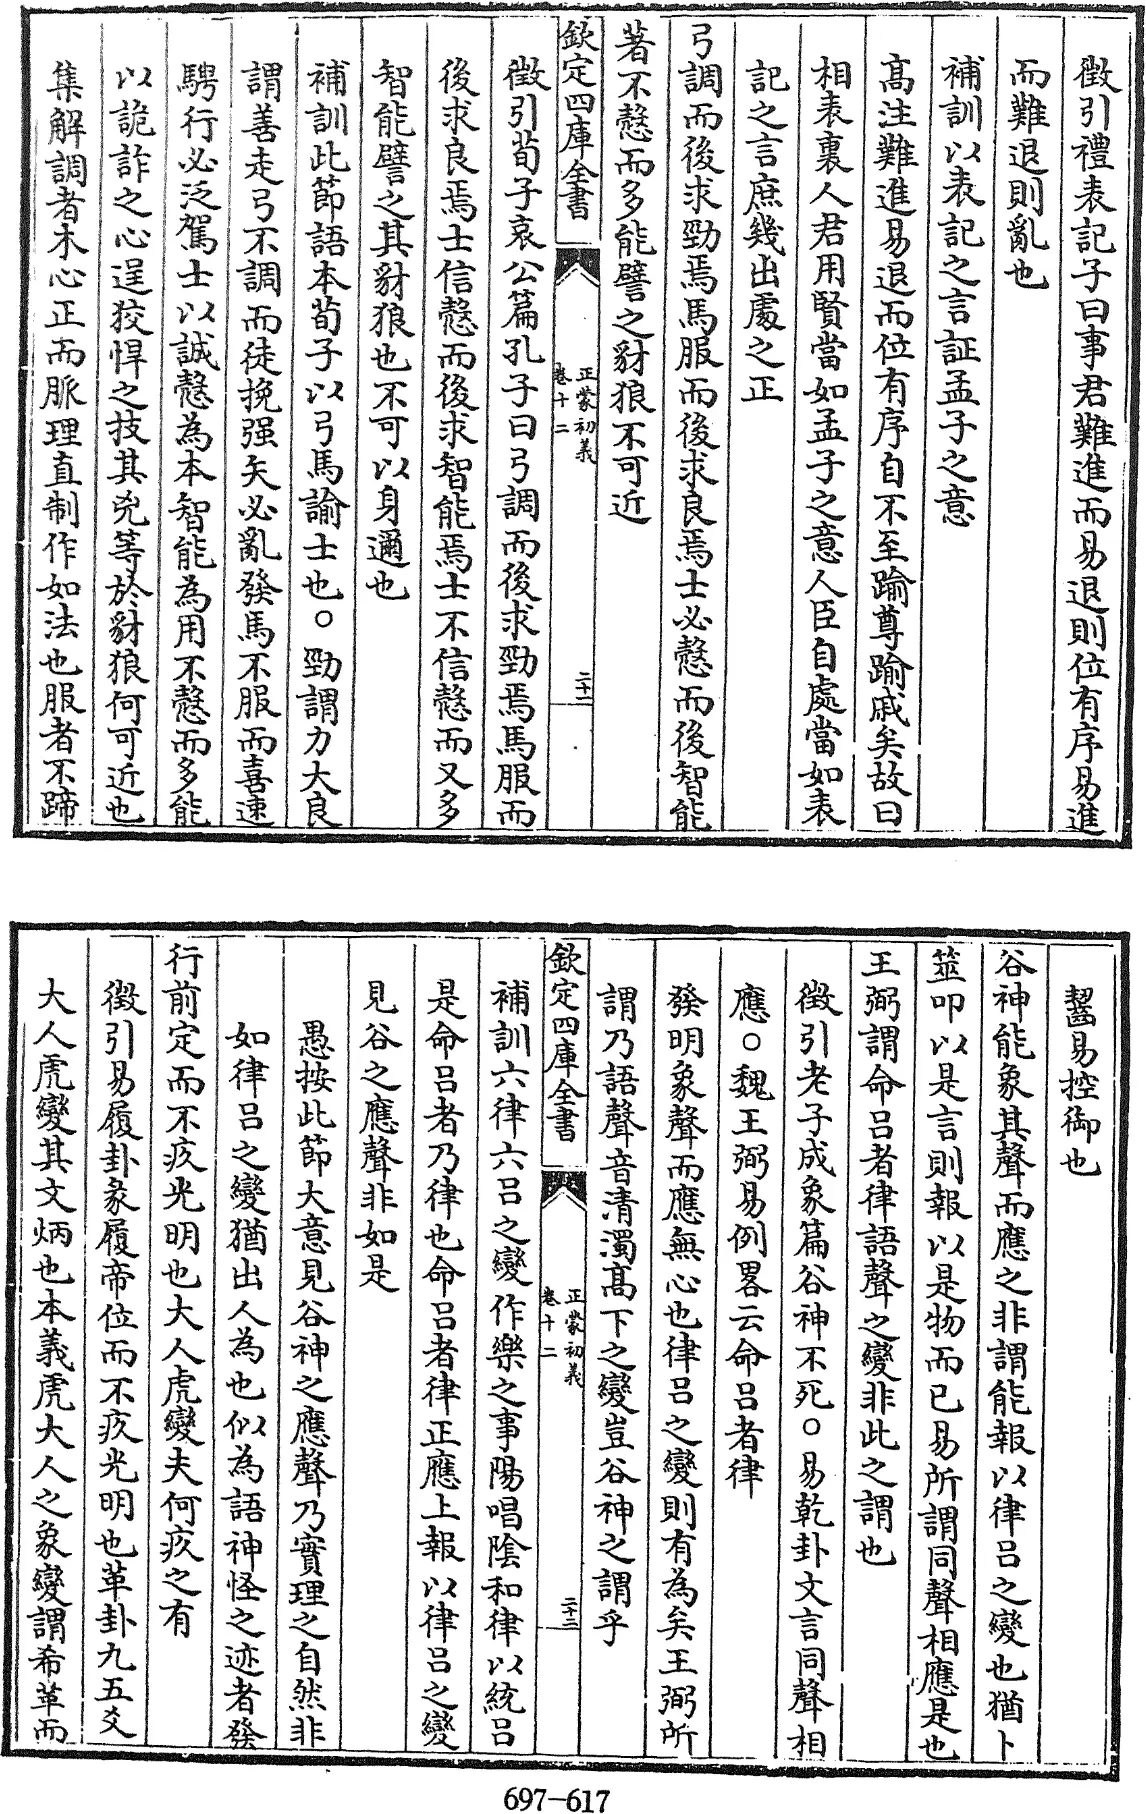 徵引禮表記子曰事君難進而易退則位有序易進
而難退則亂也
補訓以表記之言証孟子之意
高注難進易退而位有序自不至踰尊踰戚矣故曰
相表裏人君用賢當如孟子之意人臣自處當如表
記之言庶幾出處之正
弓調而後求勁焉馬服而後求良焉士必慤而後智能
著不慤而多能譬之豺狼不可近
欽定四庫全書
正蒙初義
卷十二
二十一
徵引荀子哀公篇孔子曰弓調而後求勁焉馬服而
後求良焉士信慤而後求智能焉士不信慤而又多
智能譬之其豺狼也不可以身邇也
補訓此節語本荀子以弓馬諭士也○勁謂力大良
謂善走弓不調而徒挽强矢必亂發馬不服而喜速
騁行必泛駕士以誠慤為本智能為用不慤而多能
以詭詐之心逞狡悍之技其兇等於豺狼何可近也
集解調者木心正而脈理直制作如法也服者不蹄
齧易控御也
谷神能象其聲而應之非謂能報以律呂之變也猶卜
筮叩以是言則報以是物而已易所謂同聲相應是也
王弼謂命呂者律語聲之變非此之謂也
徵引老子成象篇谷神不死○易乾卦文言同聲相
應○魏王弼易例畧云命呂者律
發明象聲而應無心也律呂之變則有為矣王弼所
謂乃語聲音清濁高下之變豈谷神之謂乎
欽定四庫全書
正蒙初義
卷十二
二十二
補訓六律六呂之變作樂之事陽唱陰和律以統呂
是命呂者乃律也命呂者律正應上報以律呂之變
見谷之應聲非如是
愚按此節大意見谷神之應聲乃實理之自然非
如律呂之變猶出人為也似為語神怪之迹者發
行前定而不疚光明也大人虎變夫何疚之有
徵引易履卦彖履帝位而不疚光明也革卦九五爻
大人虎變其文炳也本義虎大人之象變謂希革而
697-617